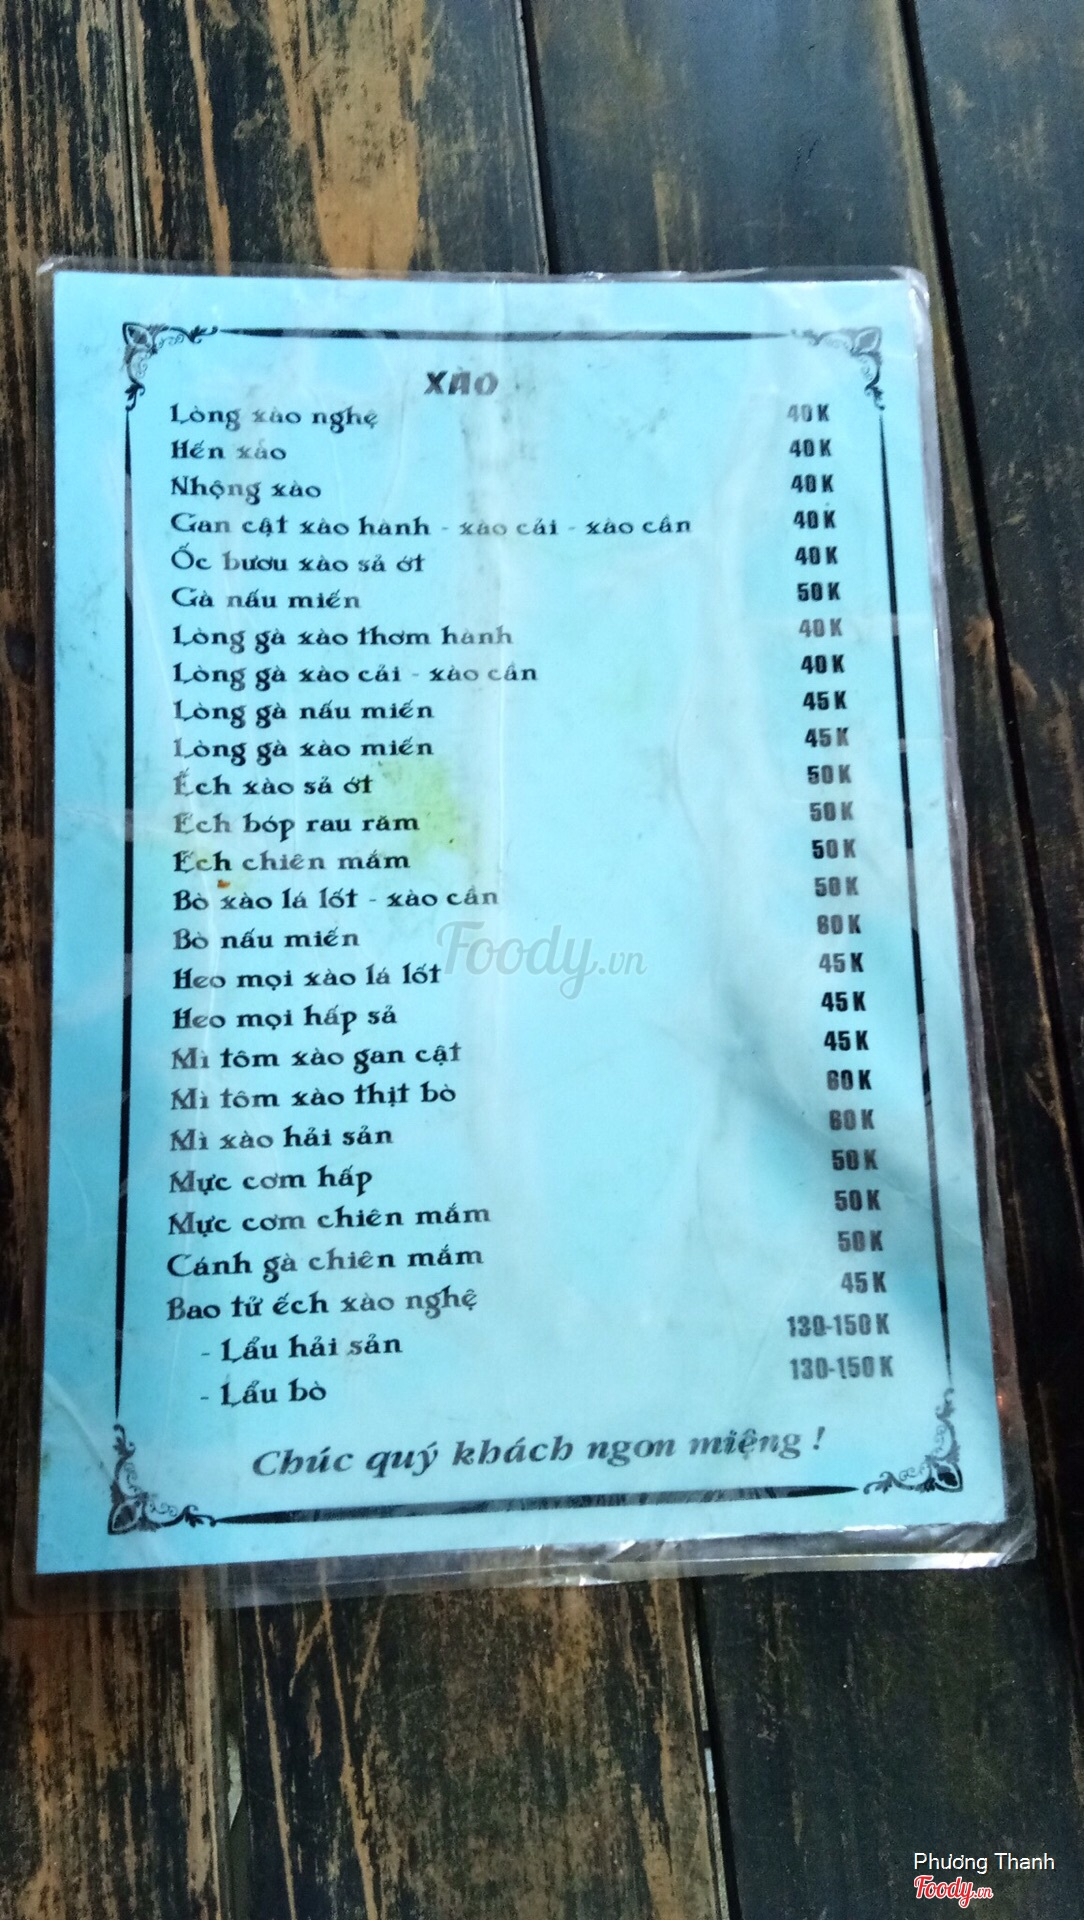 XÀO
Lòng xào nghệ 40K
Hến xào 40K
Nhộng xào 40K
Gan cật xào hành - xào cải - xào cần 40K
Ốc bươu xào sả ớt 40K
Gà nấu miến 50K
Lòng gà xào thơm hành 40K
Lòng gà xào cải - xào cần 40K
Lòng gà nấu miến 45K
Lòng gà xào miến 45K
Ếch xào sả ớt 50K
Ếch bóp rau răm 50K
Ếch chiên mắm 50K
Bò xào lá lốt - xào cần 50K
Bò nấu miến 60K
Heo mọi xào lá lốt 45K
Heo mọi hấp sả 45K
Mì tôm xào gan cật 45K
Mì tôm xào thịt bò 60K
Mì xào hải sản 60K
Mực cơm hấp 50K
Mực cơm chiên mắm 50K
Cánh gà chiên mắm 50K
Bao tử ếch xào nghệ 45K
- Lẩu hải sản 130-150K
- Lẩu bò 130-150K
Chúc quý khách ngon miệng !
Foody.vn
Phương Thanh
Foody.vn